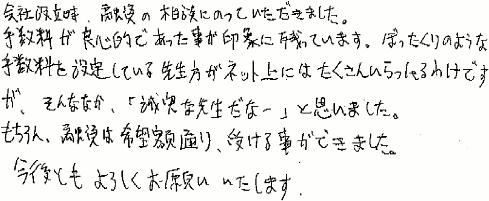 会社設立時、融資の相談にのっていただきました。
手数料が良心的であった事が印象に残っています。ぼったくりのような
手数料を設定している先生方がネット上にはたくさんいらっしゃるわけです
が、そんななか、「誠実な先生だなー」と思いました。
もちろん、融資は希望額通り、受ける事ができました。
今後ともよろしくお願いいたします.